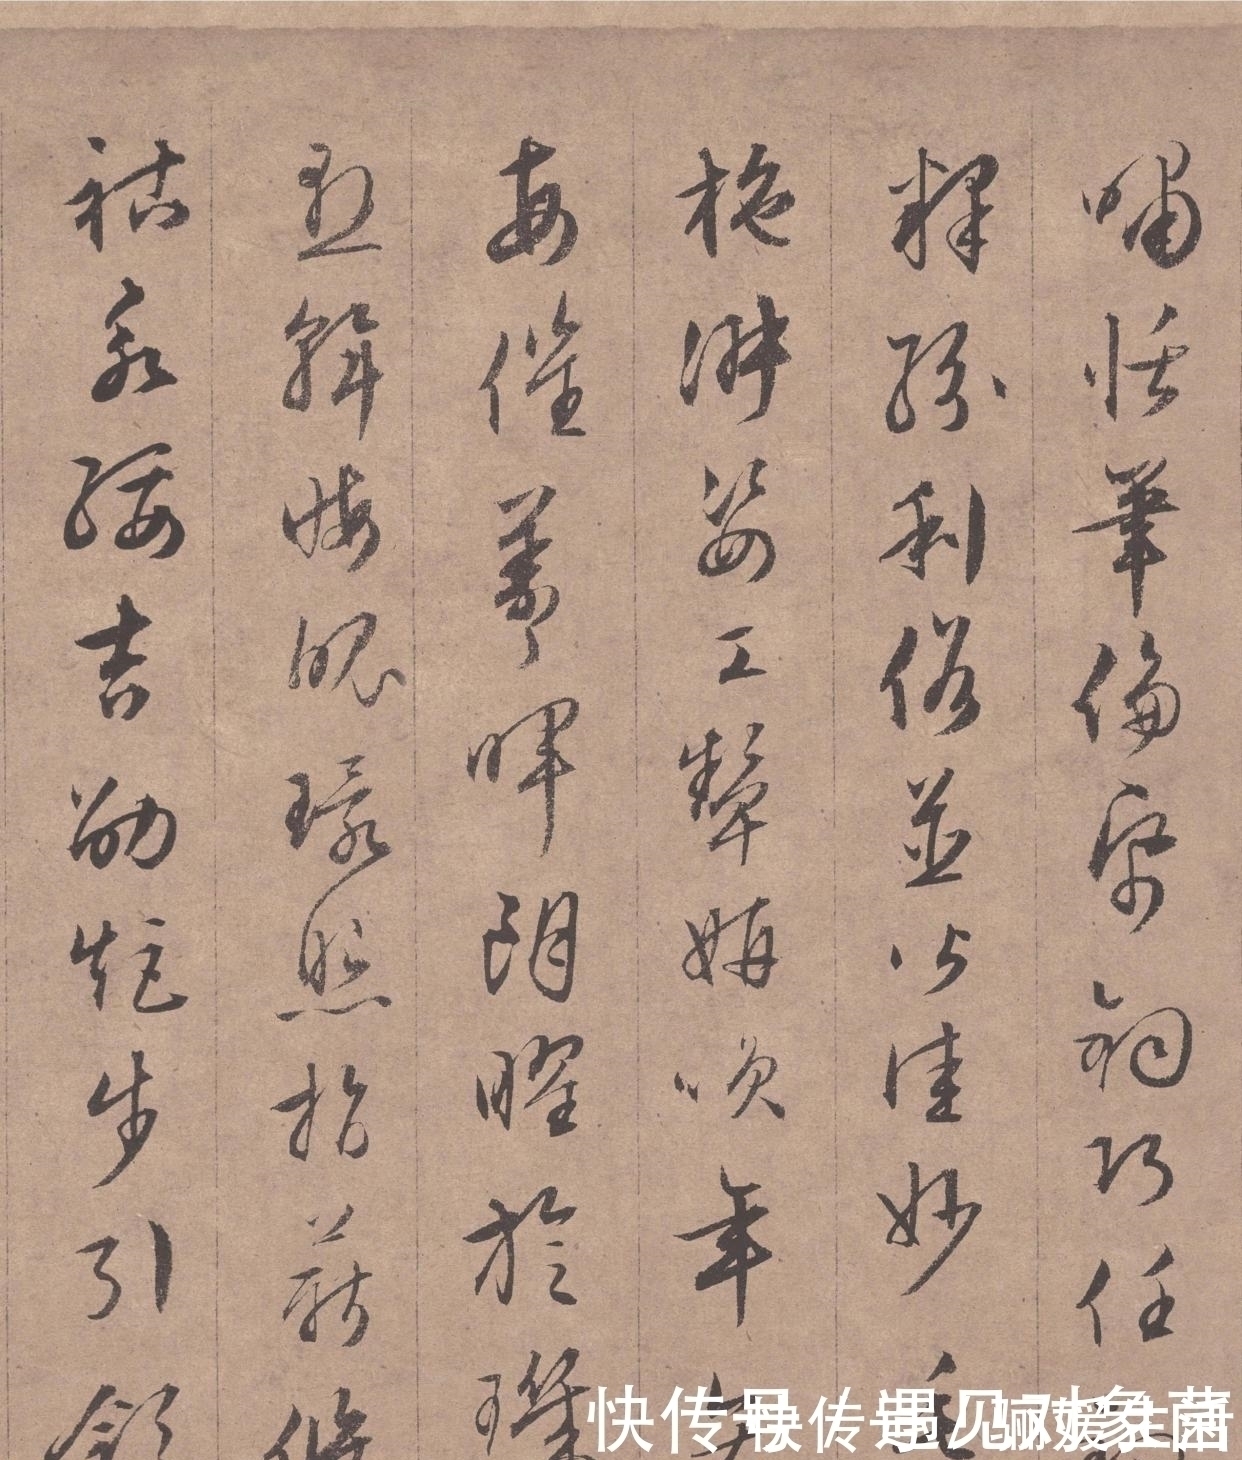 嘯恬筆倫紙鈞巧任釣
釋紛利俗並皆佳妙毛
施淑姿工顰妍咲年矢
每催羲暉朗曜旋璣
懸斡晦魄環照指薪修
祜永綏吉劭矩步引領
快传号
快传号